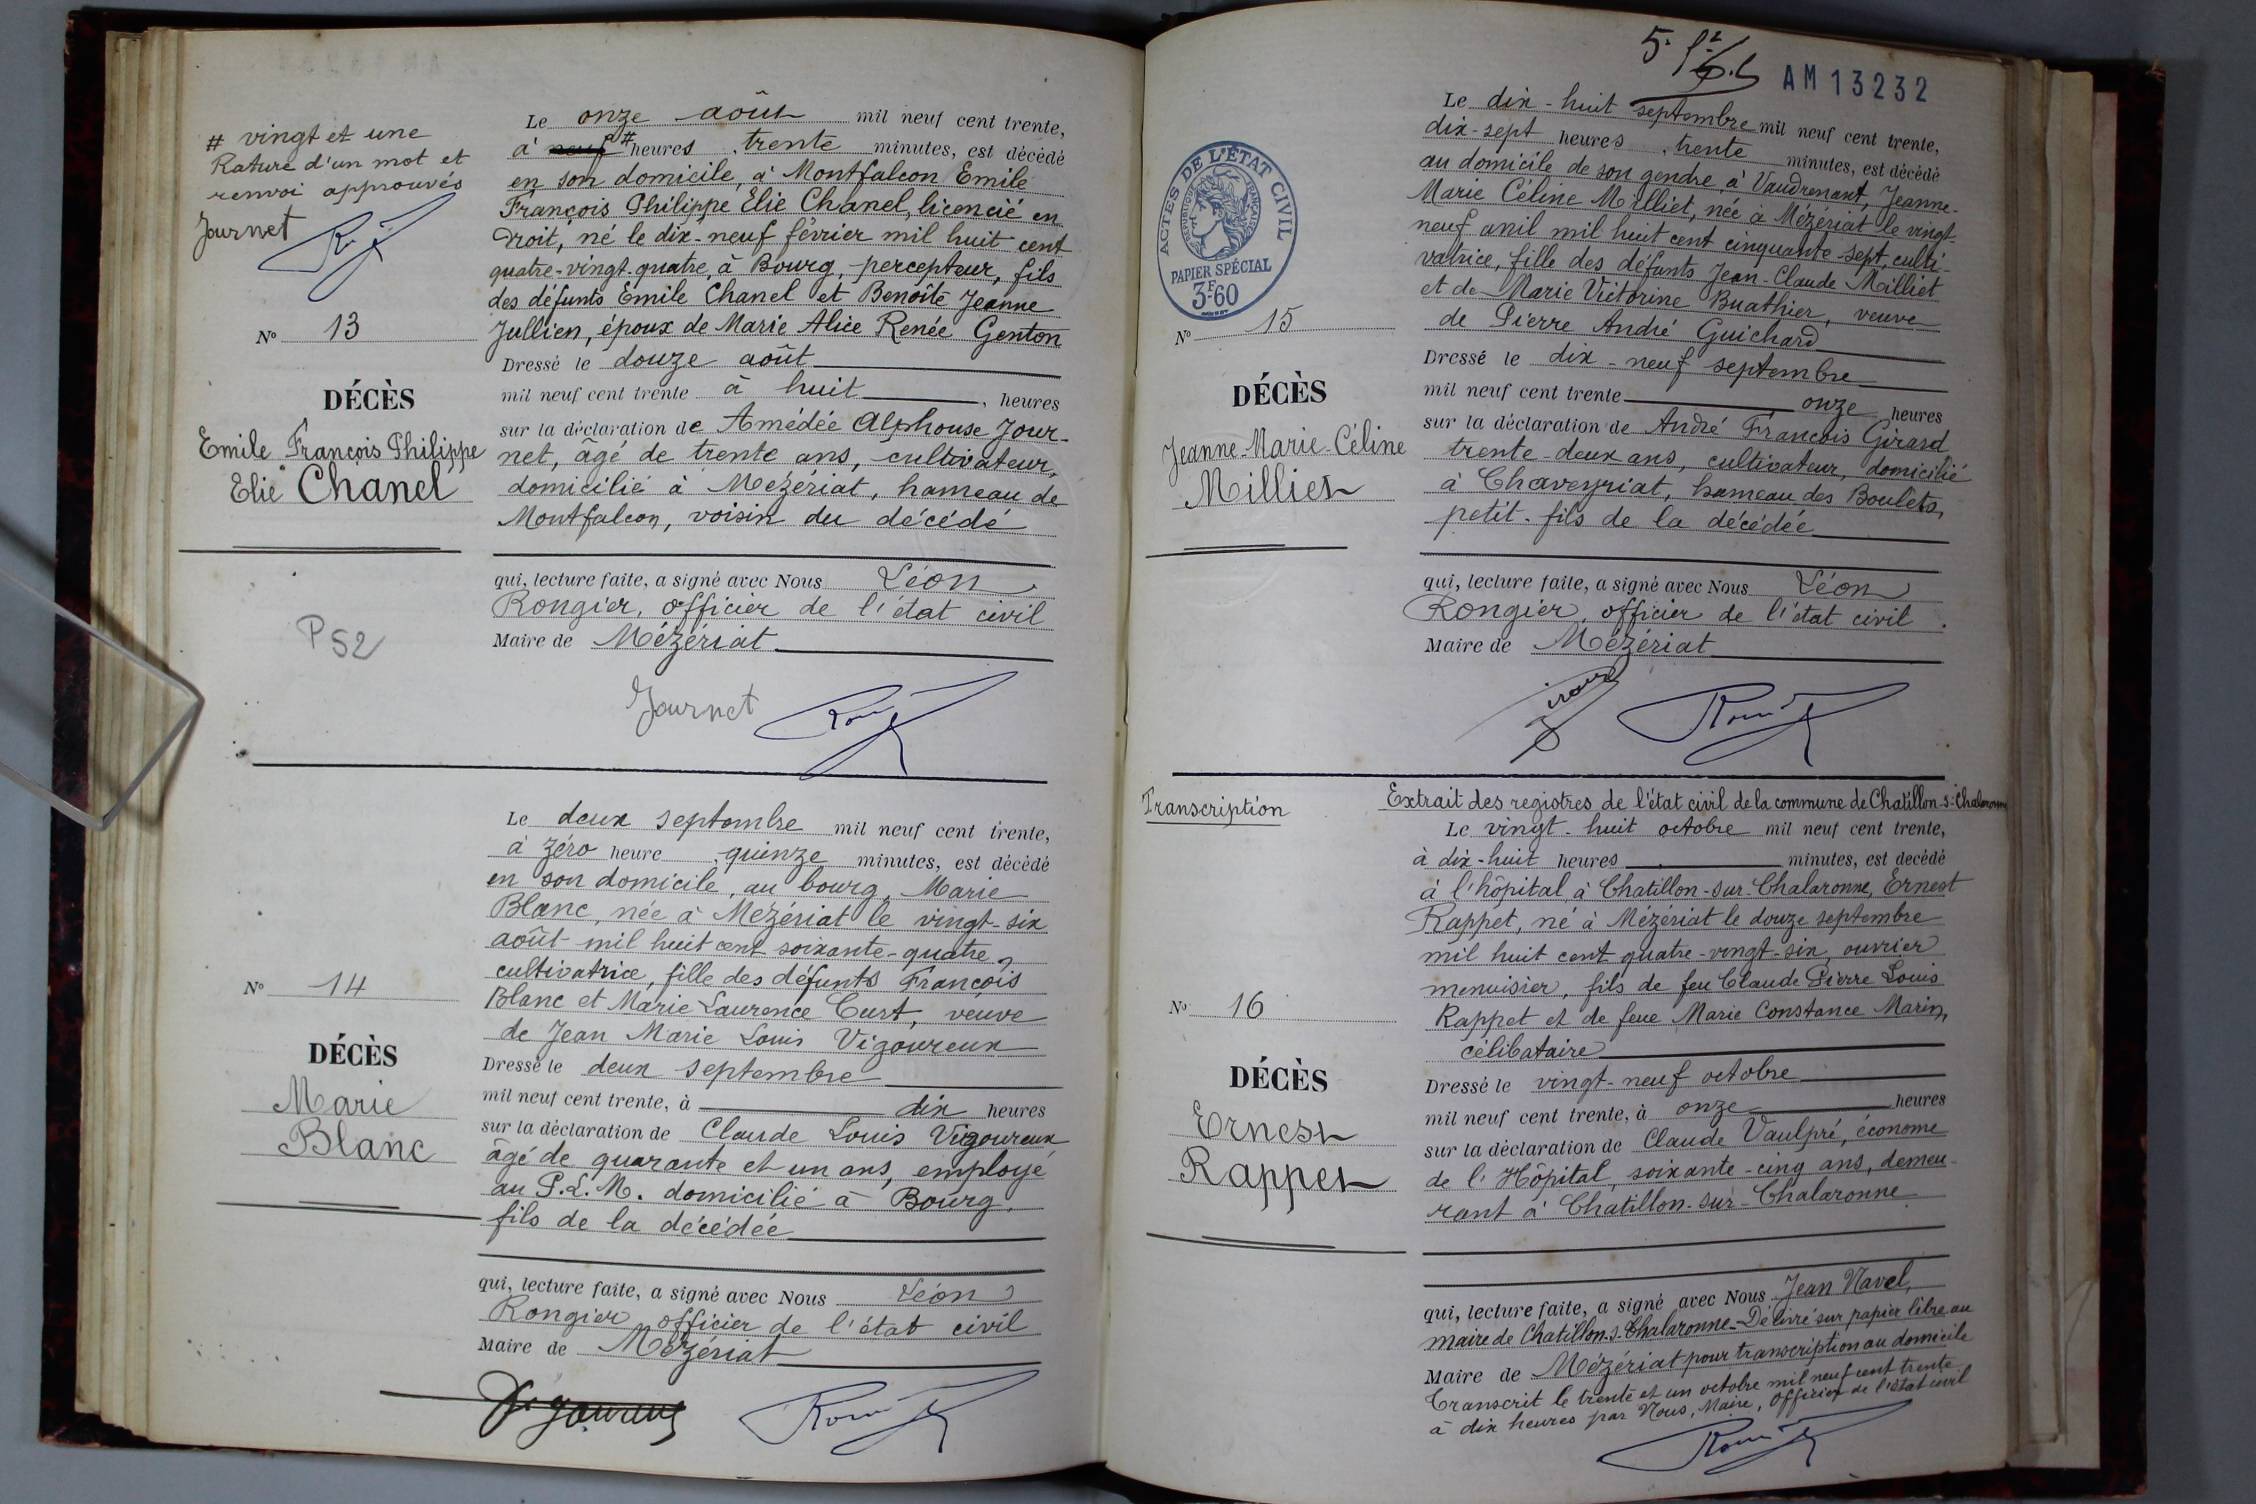 # vingt et une
Rature d'un mot et
renvoi approuvés
Journet
Le onze août mil neuf cent trente,
à neuf # heures, trente minutes, est décédé
en son domicile, à Montfalcon Emile
François Philippe Elie Chanel, licencié en
droit, né le dix-neuf février mil huit cent
quatre-vingt-quatre, à Bourg, percepteur, fils
des défunts Emile Chanel et Benoîte Jeanne
Jullien, époux de Marie Alice Renée Genton
Dressé le douze août
mil neuf cent trente à huit, heures
sur la déclaration de Amédée Alphonse Jour-
net, âgé de trente ans, cultivateur,
domicilié à Mézériat, hameau de
Montfalcon, voisin du décédé
qui, lecture faite, a signé avec Nous Léon
Rongier, officier de l'état civil
Maire de Mézériat
Journet
No 13
DÉCÈS
Emile François Philippe
Elie Chanel
P52
Le deux septembre mil neuf cent trente,
à zéro heure, quinze minutes, est décédé
en son domicile, au bourg, Marie
Blanc, née à Mézériat le vingt-six
août mil huit cent soixante-quatre,
cultivatrice, fille des défunts François
Blanc et Marie Laurence Curt, veuve
de Jean Marie Louis Vigoureux
Dressé le deux septembre
mil neuf cent trente, à dix heures
sur la déclaration de Claude Louis Vigoureux
âgé de quarante et un ans, employé
au P.L.M. domicilié à Bourg,
fils de la décédée
qui, lecture faite, a signé avec Nous Léon
Rongier officier de l'état civil
Maire de Mézériat
Vigoureux
No 14
DÉCÈS
Marie
Blanc
AM 13232
ACTES DE L'ÉTAT CIVIL
RÉPUBLIQUE FRANÇAISE
PAPIER SPÉCIAL
3F60
Le dix-huit septembre mil neuf cent trente,
dix-sept heures, trente minutes, est décédé
au domicile de son gendre, à Vaudrenant, Jeanne-
Marie Céline Milliet, née à Mézériat le vingt-
neuf avril mil huit cent cinquante-sept, culti-
vatrice, fille des défunts Jean-Claude Milliet
et de Marie Victorine Buathier, veuve
de Pierre André Guichard
Dressé le dix-neuf septembre
mil neuf cent trente onze heures
sur la déclaration de André François Girard
trente-deux ans, cultivateur, domicilié
à Chaveyriat, hameau des Boulets,
petit-fils de la décédée
qui, lecture faite, a signé avec Nous Léon
Rongier, officier de l'état civil.
Maire de Mézériat
Girard
No 15
DÉCÈS
Jeanne-Marie-Céline
Milliet
Transcription
Extrait des registres de l'état civil de la commune de Chatillon-s-Chalaronne
Le vingt-huit octobre mil neuf cent trente,
à dix-huit heures minutes, est decédé
à l'hôpital à Chatillon-sur-Chalaronne, Ernest
Rappet, né à Mézériat le douze septembre
mil huit cent quatre-vingt-six, ouvrier
menuisier, fils de feu Claude Pierre Louis
Rappet et de feue Marie Constance Marin,
célibataire
Dressé le vingt-neuf octobre
mil neuf cent trente, à onze heures
sur la déclaration de Claude Vaulpré, économe
de l'Hôpital, soixante-cinq ans, demeu-
rant à Chatillon-sur-Chalaronne
qui, lecture faite, a signé avec Nous Jean Navel,
maire de Chatillon-s-Chalaronne-Délivré sur papier libre au
Maire de Mézériat pour transcription au domicile
Transcrit le trente et un octobre mil neuf cent trente
à dix heures par Nous, Maire, Officier de l'état civil
No 16
DÉCÈS
Ernest
Rappet